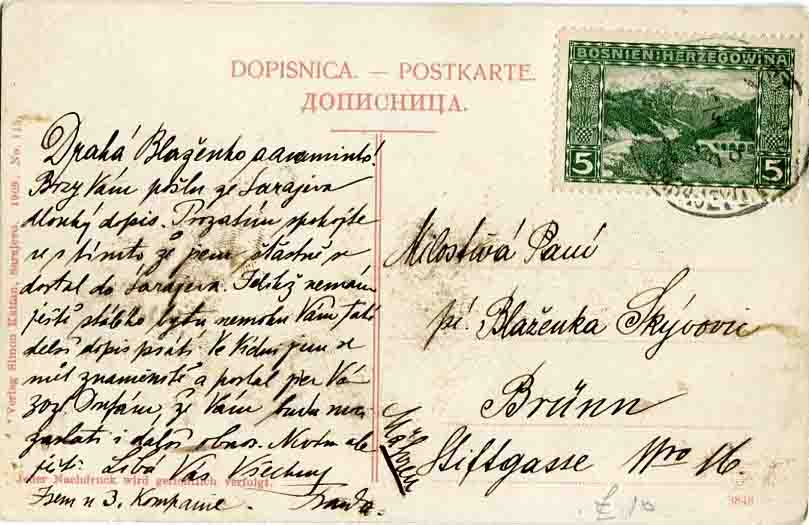 DOPISNICA. — POSTKARTE.
ДОПИСНИЦА.
BOSNIEN-HERZEGOWINA
5 5
Drahá Blaženko a
Brzy Vám pošlu ze Sarajeva
dlouhý dopis. Prozatím spokojte
se s tímto že jsem šťastně se
dostal do Sarajeva. Jelikož nemám
ještě bytu nemohu Vám také
delší dopis psáti. Ve Vídni jsem se
měl znamenitě a poslal jsem Vá
Doufám, že Vám budu moci
zaslati i další obnos. Nevím ale
ještě. Líbá Vás Všechny
Jsem u 3. Kompanie. Franta.
Milostivá Paní
pí. Blaženka Skývovic
Brünn
Mähren
Stiftgasse Nro 16.
Verlag Simon Kattan, Sarajevo. 1909. No. 115
Jeder Nachdruck wird gerichtlich verfolgt.
3848
£ 10